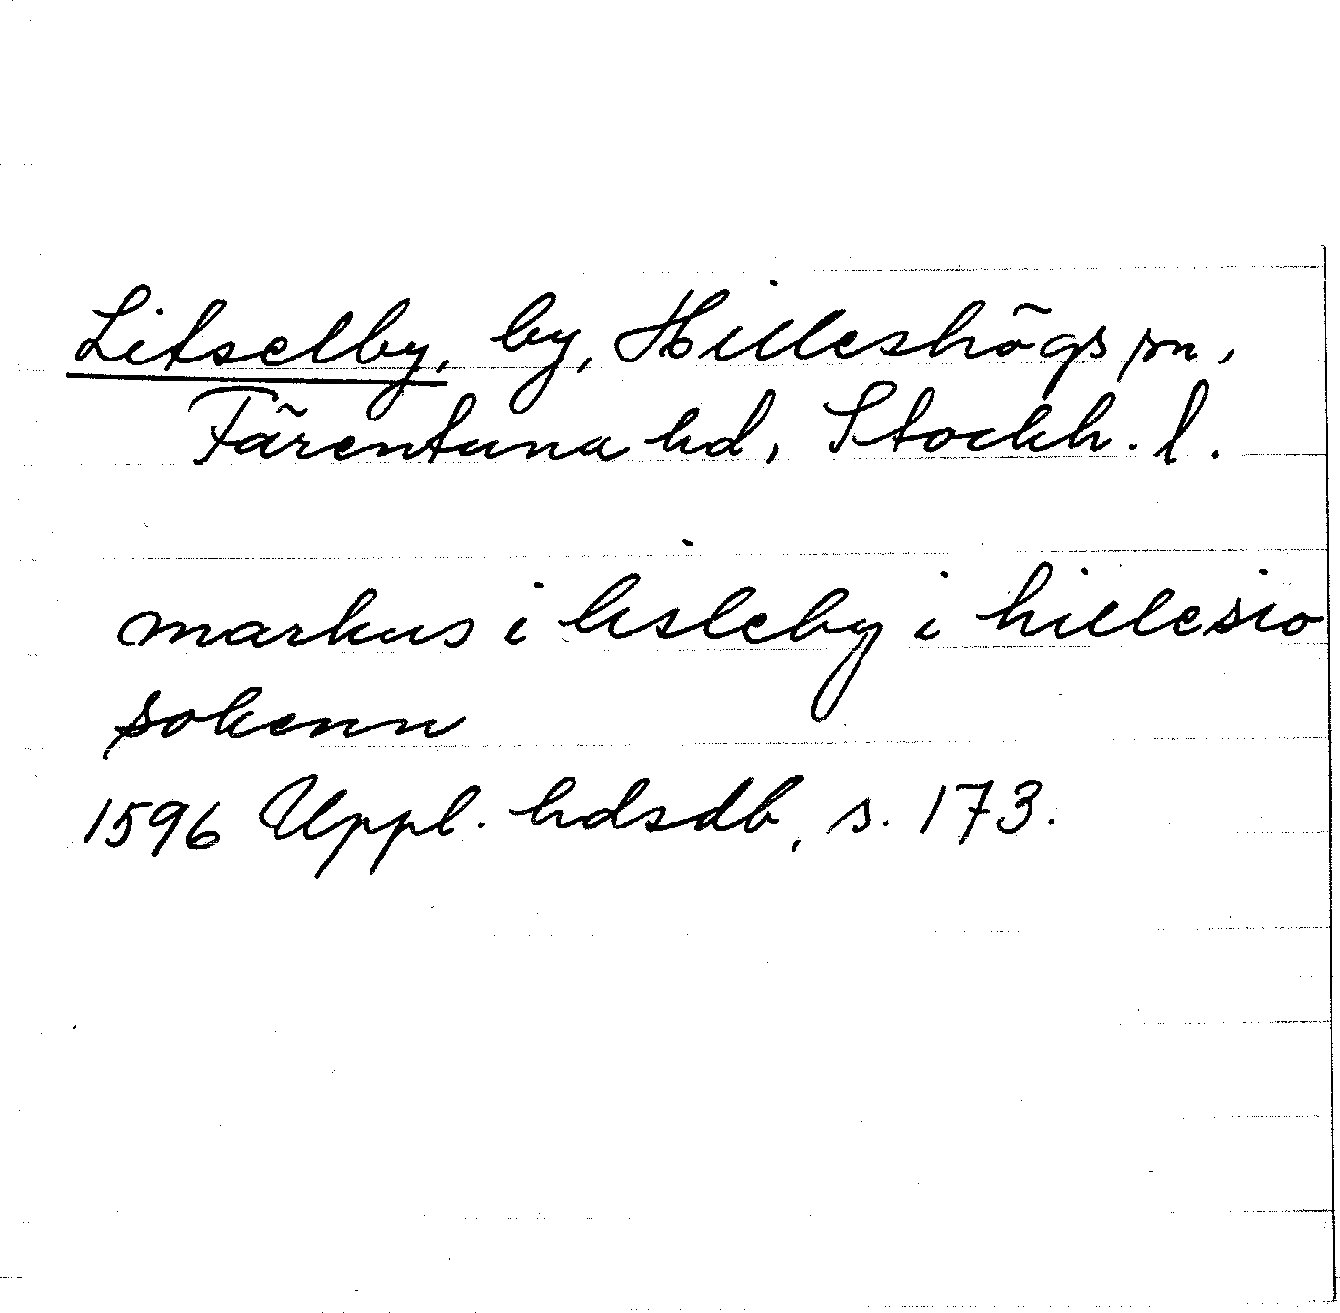 Litselby, by, Hilleshögs sn,
Färentuna hd, Stockh. l.
markus i lisleby i hillesio
sokenn
1596 Uppl. hdsdb, s. 173.